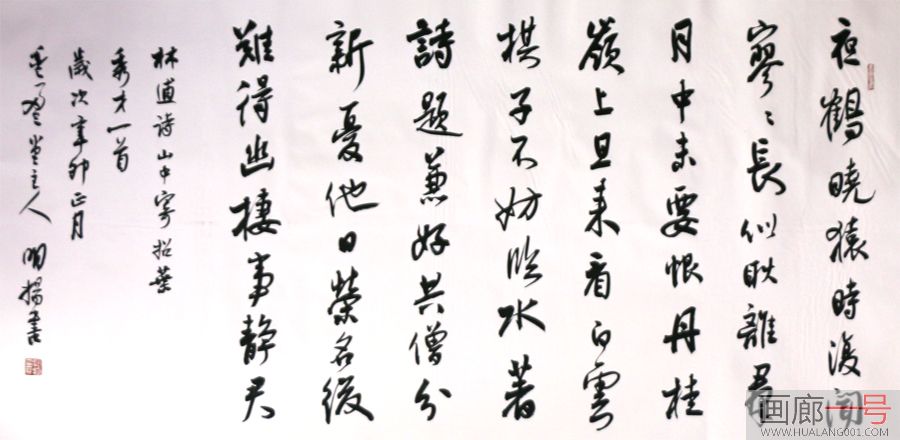 夜鶴曉猿時復聞
寥〻長似耿離羣
月中未要恨丹桂
嶺上且来看白雲
棋子不妨临水著
詩題兼好共僧分
新憂他日榮名後
難得幽棲事静君
林逋詩山中寄招葉
秀才一首
歲次辛卯正月
堂主人 明揚書
画廊一号
WWW.HUALANG001.COM